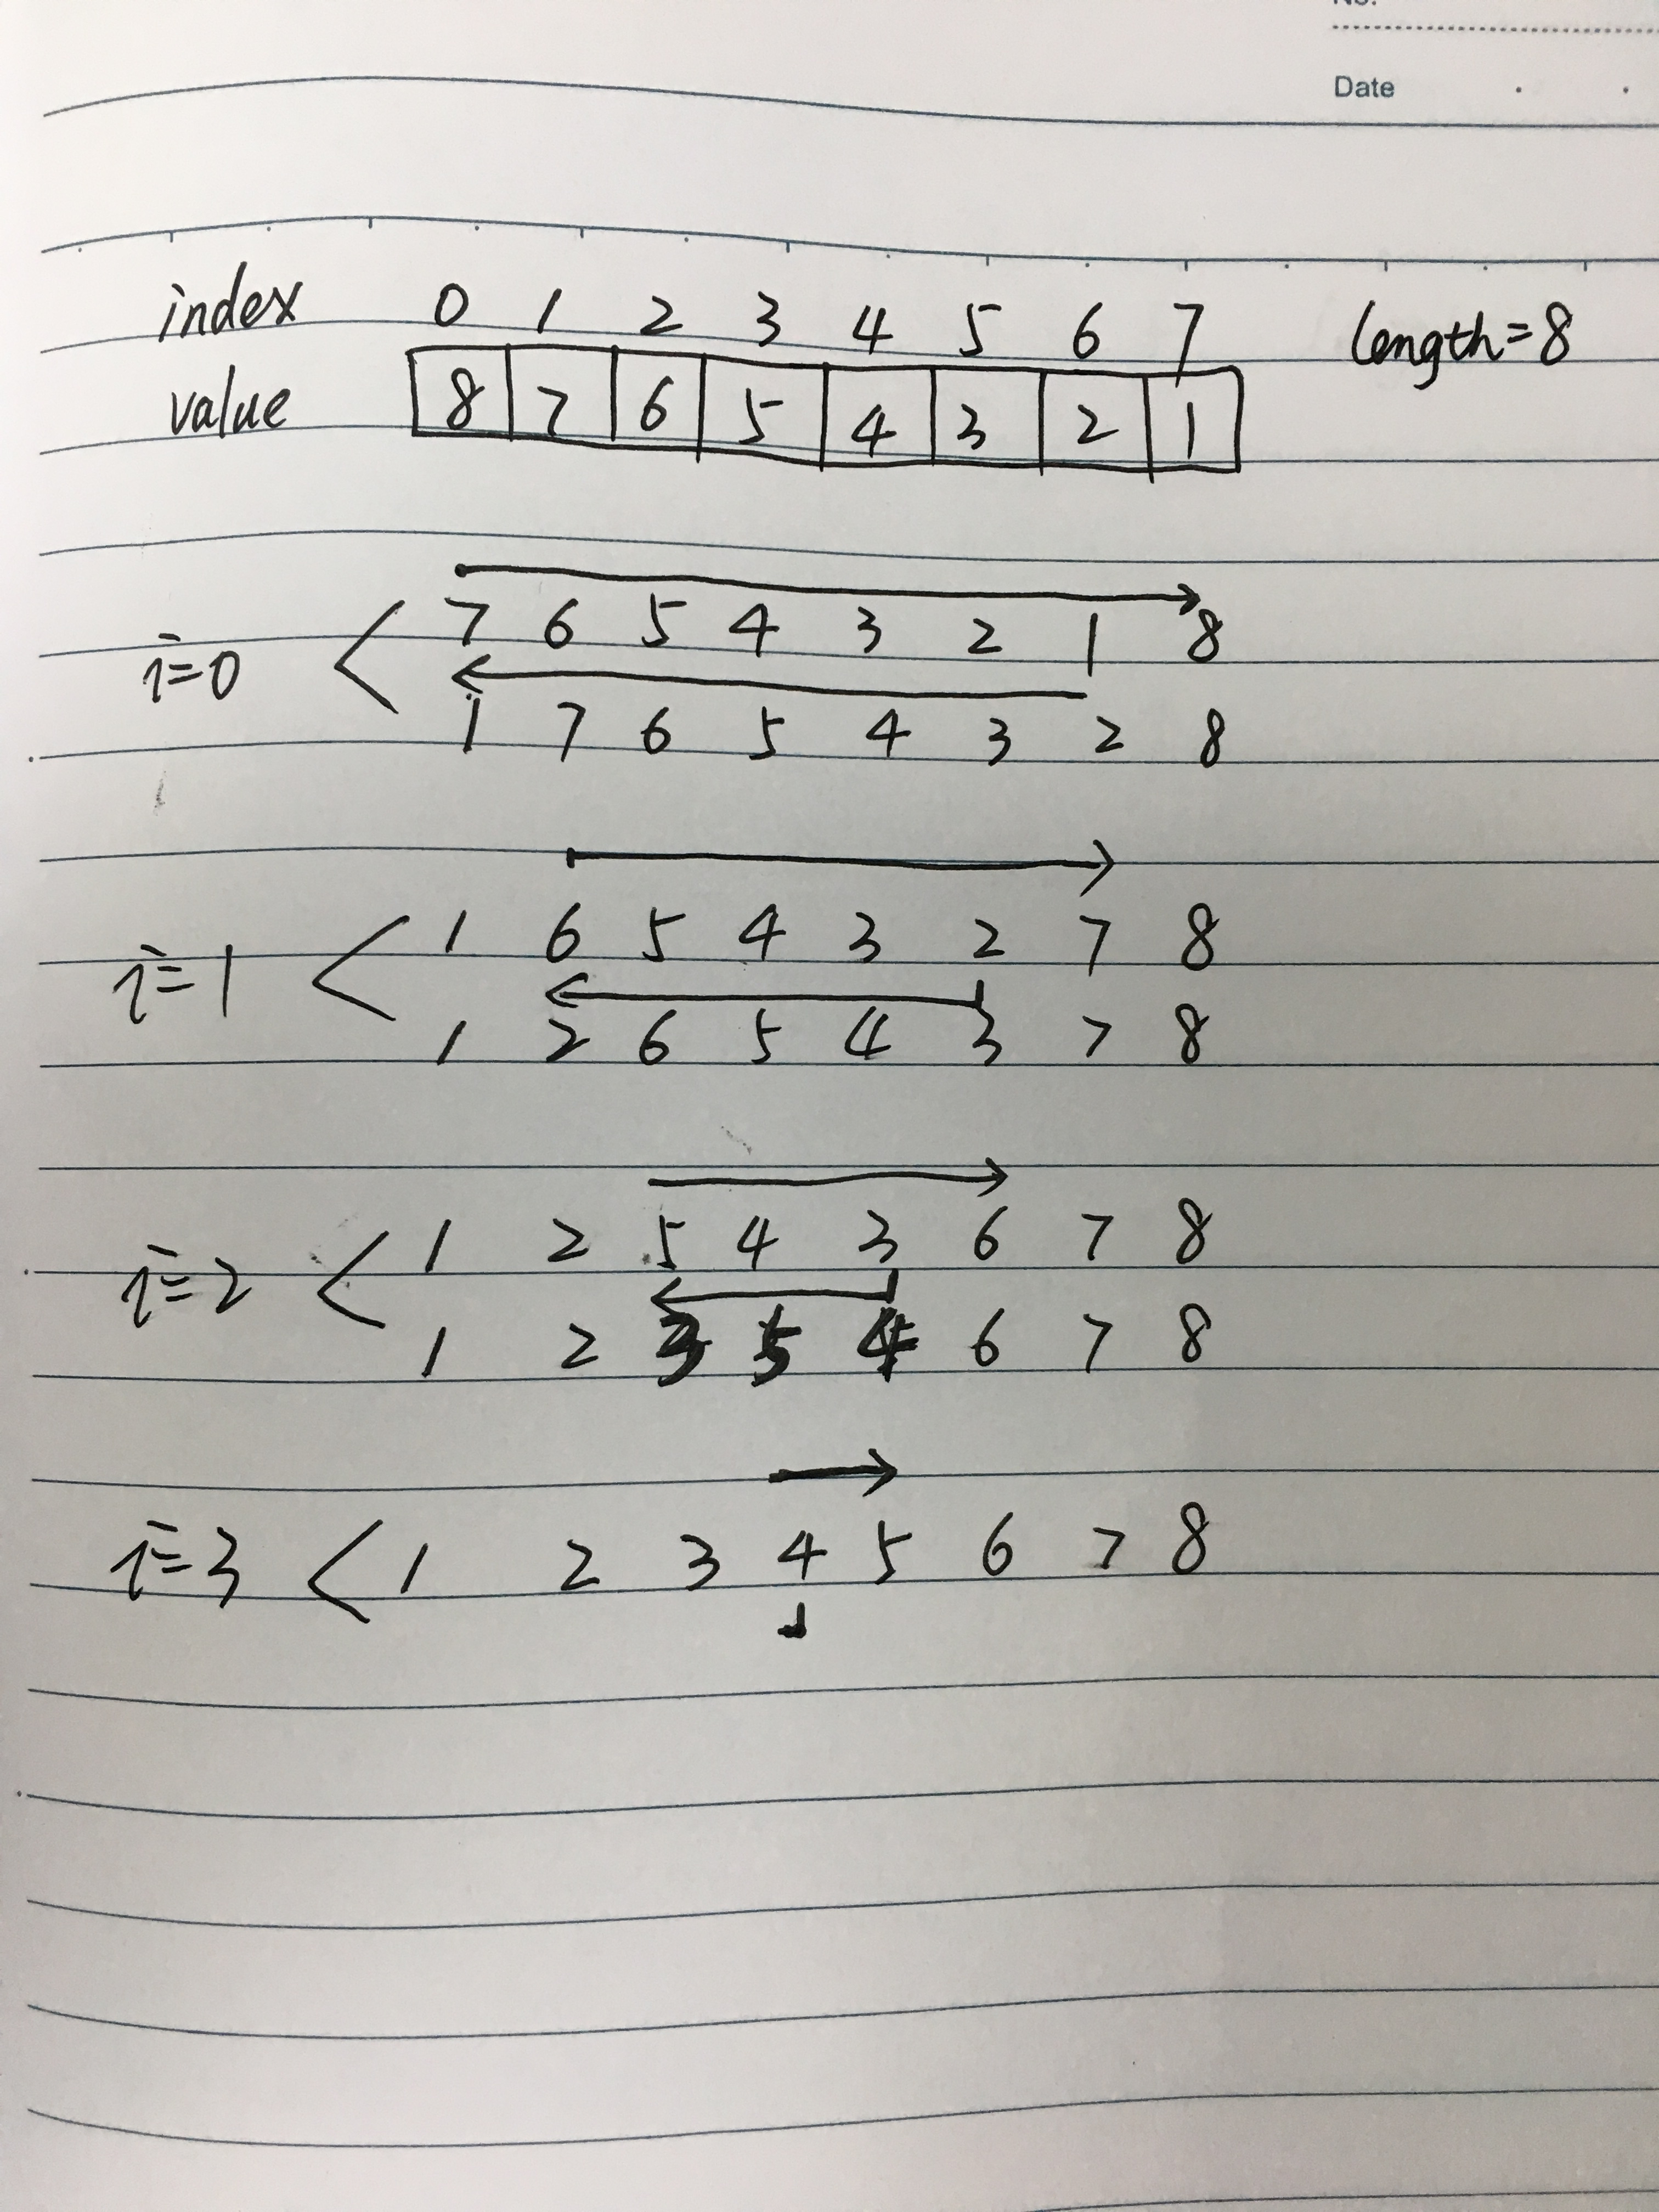 No.
Date
index 0 1 2 3 4 5 6 7 length=8
value 8 7 6 5 4 3 2 1
7 6 5 4 3 2 1 8
i=0
1 7 6 5 4 3 2 8
1 6 5 4 3 2 7 8
i=1
1 2 6 5 4 3 7 8
1 2 5 4 3 6 7 8
i=2
1 2 3 5 4 6 7 8
i=3 1 2 3 4 5 6 7 8